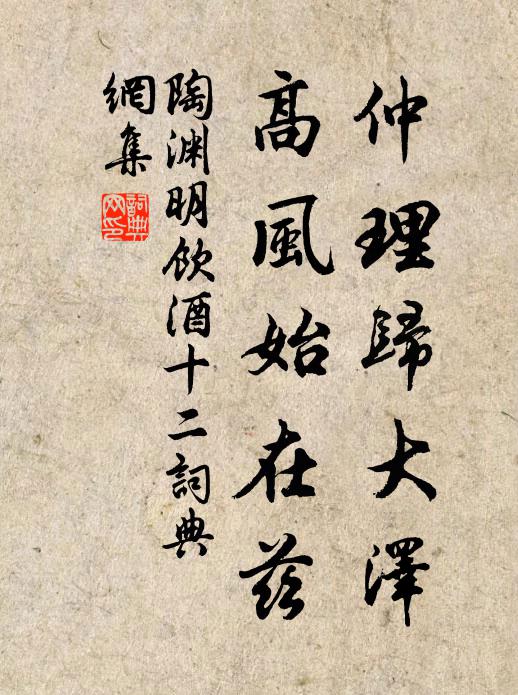 仲理歸大澤
高風始在茲
陶淵明飲酒十二詞典
網集
詞典
网印